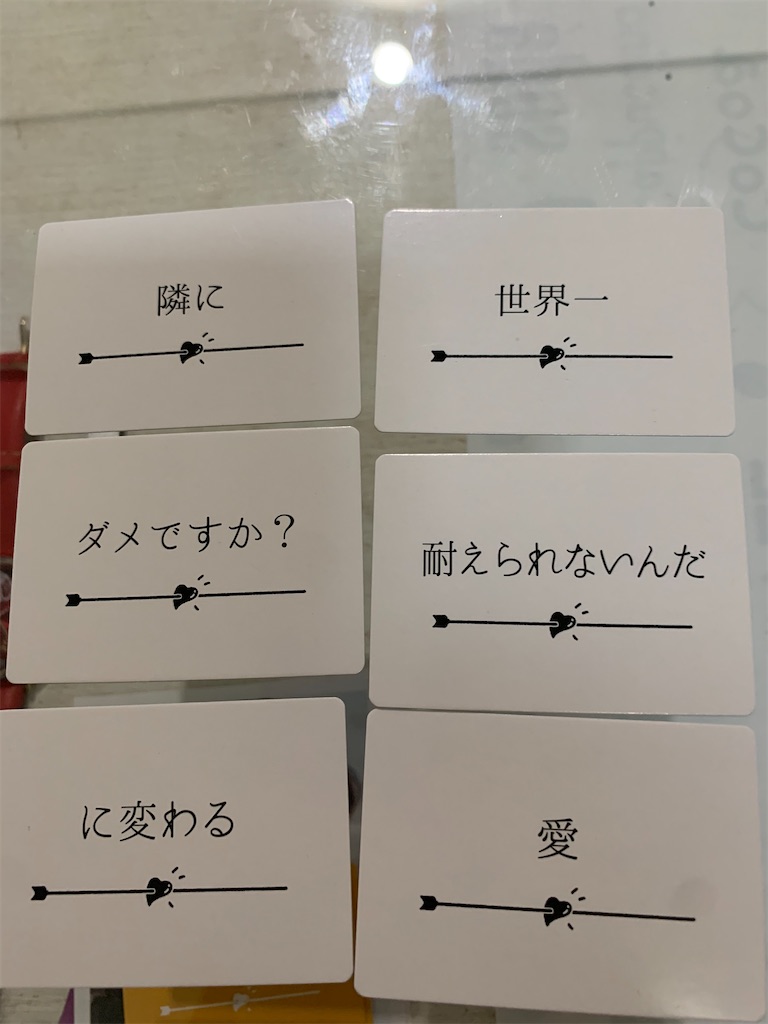 隣に
世界一
ダメですか？
耐えられないんだ
に変わる
愛